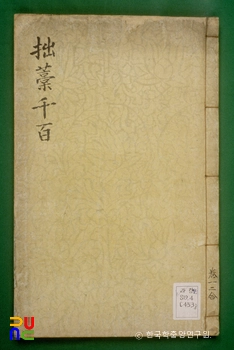 拙藁千百
卷一二全
한국학중앙연구원